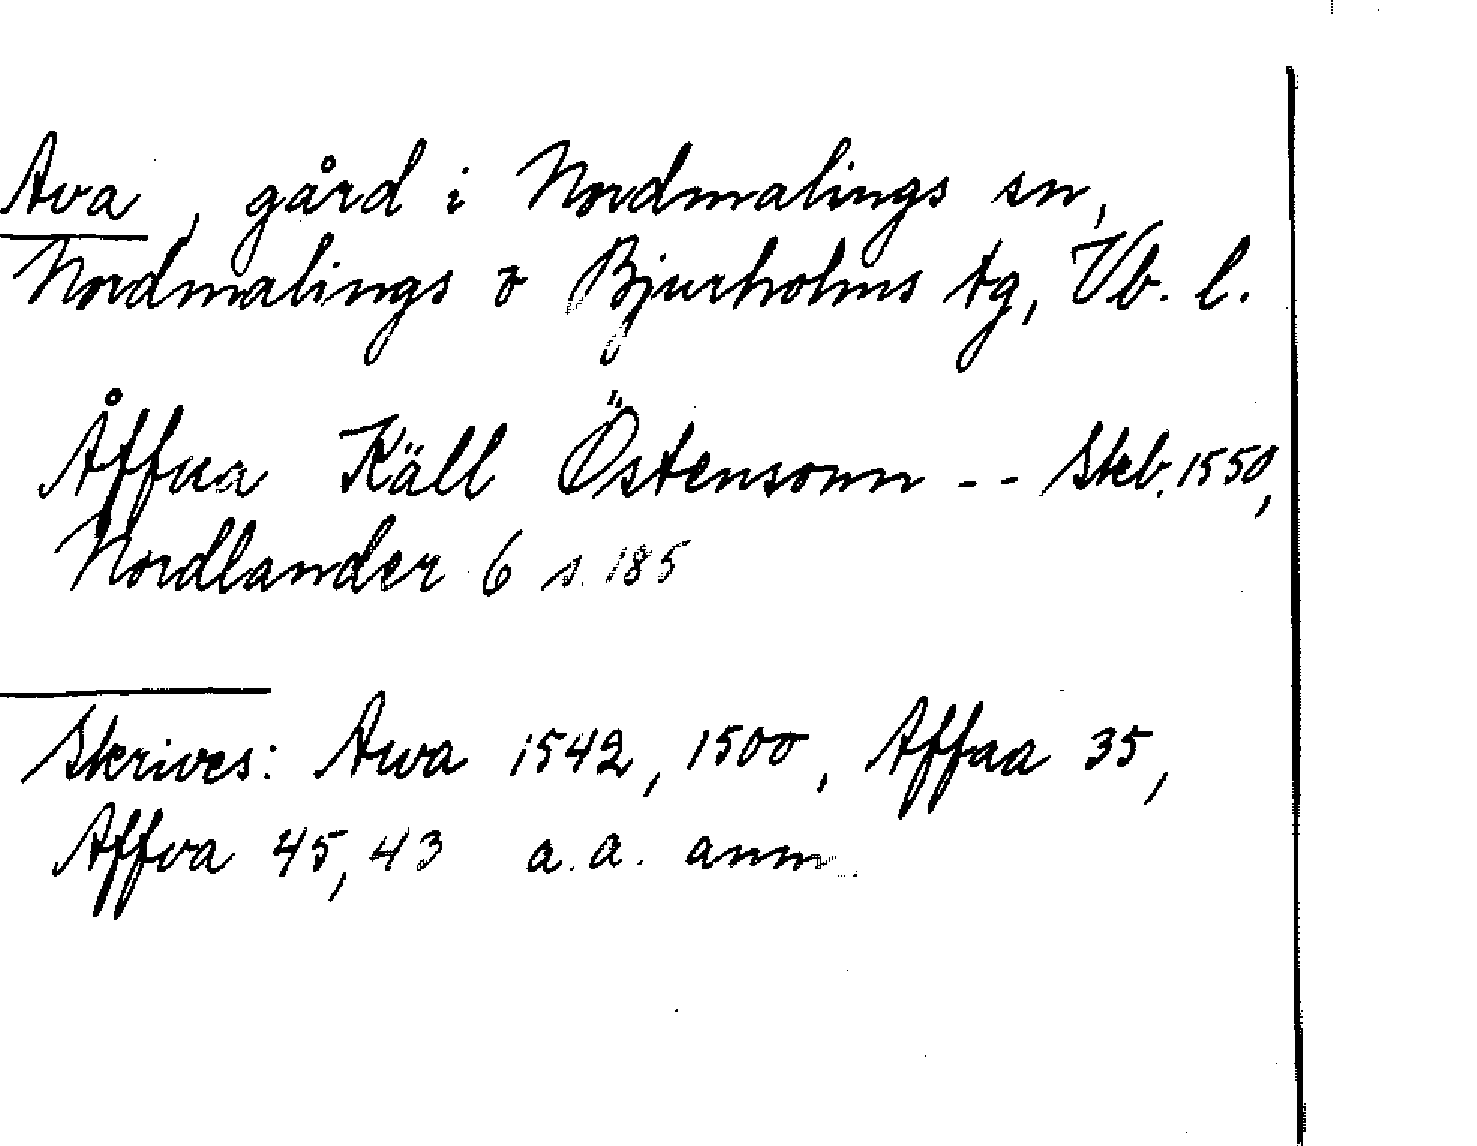 Ava, gård i Nordmalings sn,
Nordmalings o Bjurholms tg, Vb. l.
Åffua Käll Östensonn -- Skb. 1550,
Nordlander 6 s. 185
Skrives: Awa 1542, 1500, Affaa 35,
Affva 45, 43 a.a. anm.